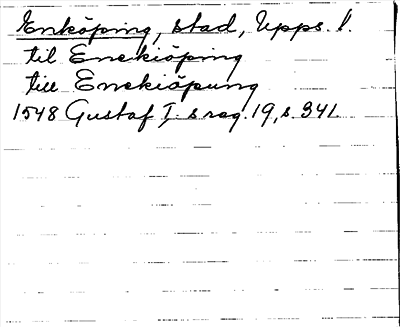 Enköping, stad, Upps. l.
til Enckiöping
till Enekiöpung
1548 Gustaf I:s reg. 19, s. 341.